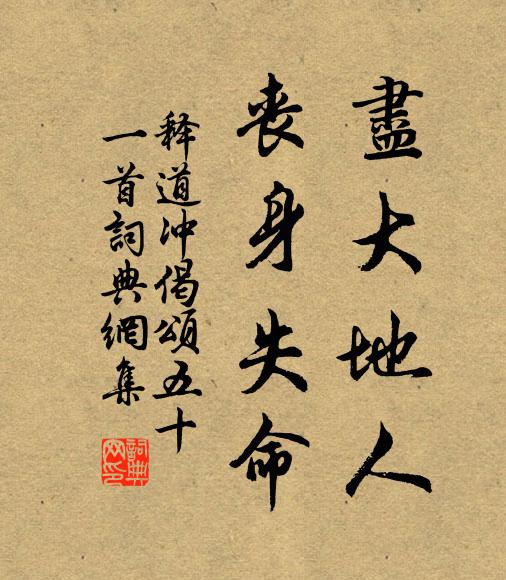 盡大地人
喪身失命
释道冲偈頌五十
一首詞典網集
詞典
网印